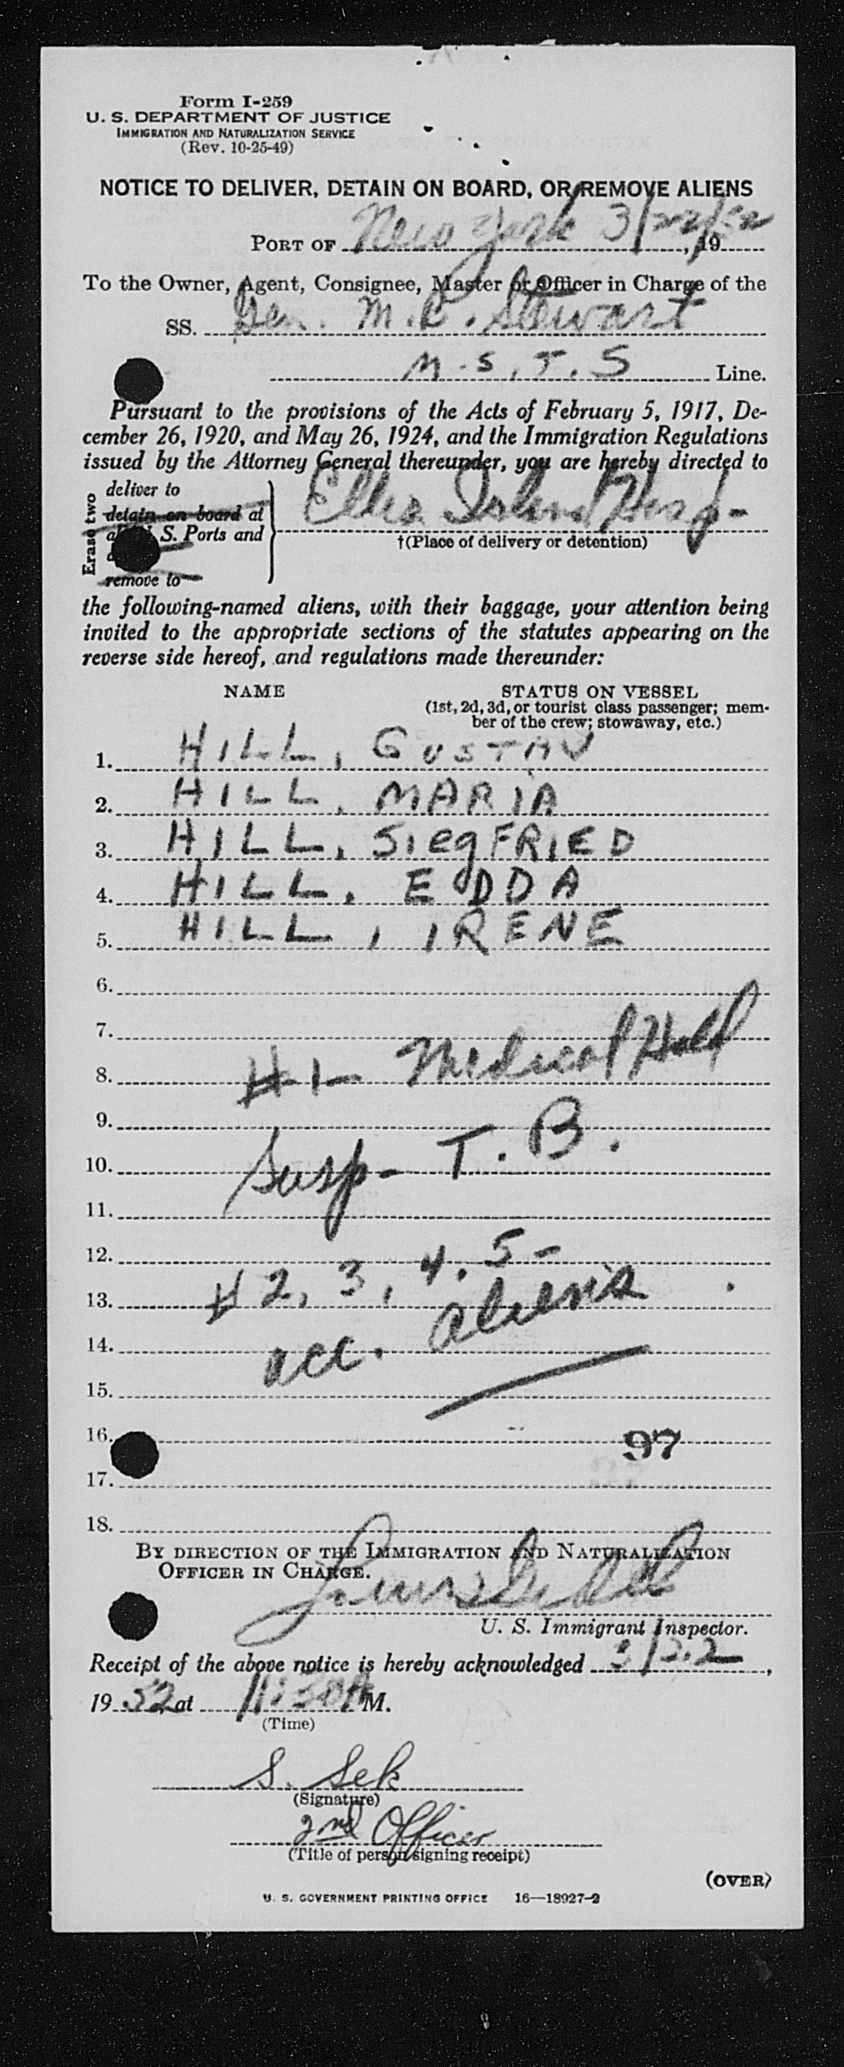 Form I-259
U. S. DEPARTMENT OF JUSTICE
IMMIGRATION AND NATURALIZATION SERVICE
(Rev. 10-25-49)
NOTICE TO DELIVER, DETAIN ON BOARD, OR REMOVE ALIENS
PORT OF New York 3/22/52, 19
To the Owner, Agent, Consignee, Master or Officer in Charge of the
SS. Gen. M. C. Stewart
M.S.T.S Line.
Pursuant to the provisions of the Acts of February 5, 1917, De-
cember 26, 1920, and May 26, 1924, and the Immigration Regulations
issued by the Attorney General thereunder, you are hereby directed to
Erase two
deliver to
detain on board at
S. Ports and
remove to
Ellis Island Hosp-
†(Place of delivery or detention)
the following-named aliens, with their baggage, your attention being
invited to the appropriate sections of the statutes appearing on the
reverse side hereof, and regulations made thereunder:
NAME STATUS ON VESSEL
(1st, 2d, 3d, or tourist class passenger; mem-
ber of the crew; stowaway, etc.)
1. HILL, GUSTAV
2. HILL, MARIA
3. HILL, SiegFRIED
4. HILL, EDDA
5. HILL, IRENE
6.
7.
8. #1- Medical Hold
9.
10. Susp- T.B.
11.
12.
13. # 2, 3, 4, 5-
14. acc. aliens
15.
16. 97
17.
18.
BY DIRECTION OF THE IMMIGRATION AND NATURALIZATION
OFFICER IN CHARGE.
U. S. Immigrant Inspector.
Receipt of the above notice is hereby acknowledged 3/22,
1952 at 11:50A M.
(Time)
S. Sek
(Signature)
2nd Officer
(Title of person signing receipt)
(OVER)
U. S. GOVERNMENT PRINTING OFFICE 16—18927-2